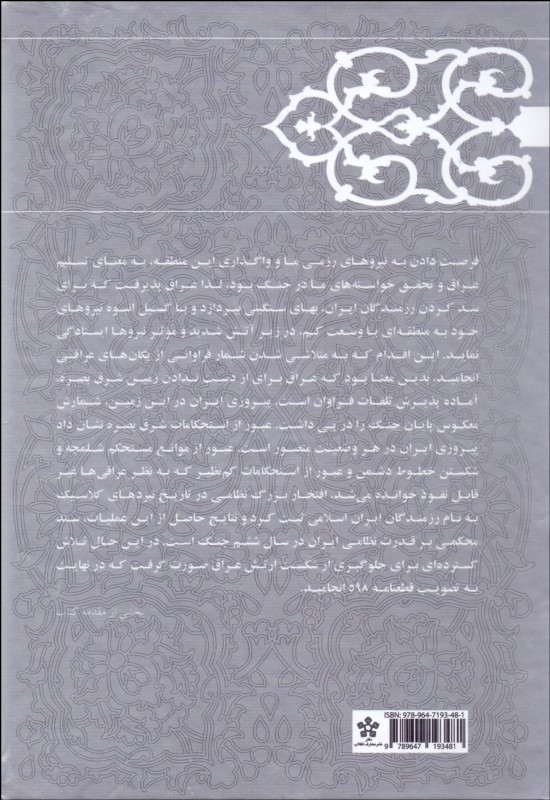 فرصت دادن به نیروهای رزمی ما و واگذاری این منطقه، به معنای تسلیم
عراق و تحقق خواسته‌های ما در جنگ بود، لذا عراق پذیرفت که برای
سد کردن رزمندگان ایران، بهای سنگینی بپردازد و با گسیل انبوه نیروهای
خود به منطقه‌ای با وسعت کم، در زیر آتش شدید و مؤثر نیروها ایستادگی
نماید. این اقدام که به متلاشی شدن شمار فراوانی از یگان‌های عراقی
انجامید، بدین معنا بود که عراق برای از دست ندادن زمین شرق بصره،
آماده پذیرش تلفات فراوان است. پیروزی ایران در این زمین، شمارش
معکوس پایان جنگ را در پی داشت. عبور از استحکامات شرق بصره نشان داد
پیروزی ایران در هر وضعیت متصور است. عبور از موانع مستحکم شلمچه و
شکستن خطوط دشمن و عبور از استحکامات کم‌نظیر که به نظر عراقی‌ها غیر
قابل نفوذ خوانده می‌شد، افتخار بزرگ نظامی در تاریخ نبردهای کلاسیک
به نام رزمندگان ایران اسلامی ثبت کرد و نتایج حاصل از این عملیات، سند
محکمی بر قدرت نظامی ایران در سال ششم جنگ است. در این حال تلاش
گسترده‌ای برای جلوگیری از شکست ارتش عراق صورت گرفت که در نهایت
به تصویب قطعنامه ۵۹۸ انجامید.
بخشی از مقدمه کتاب
ISBN: 978-964-7193-48-1
9 789647 193481
دفتر
نشر معارف انقلاب